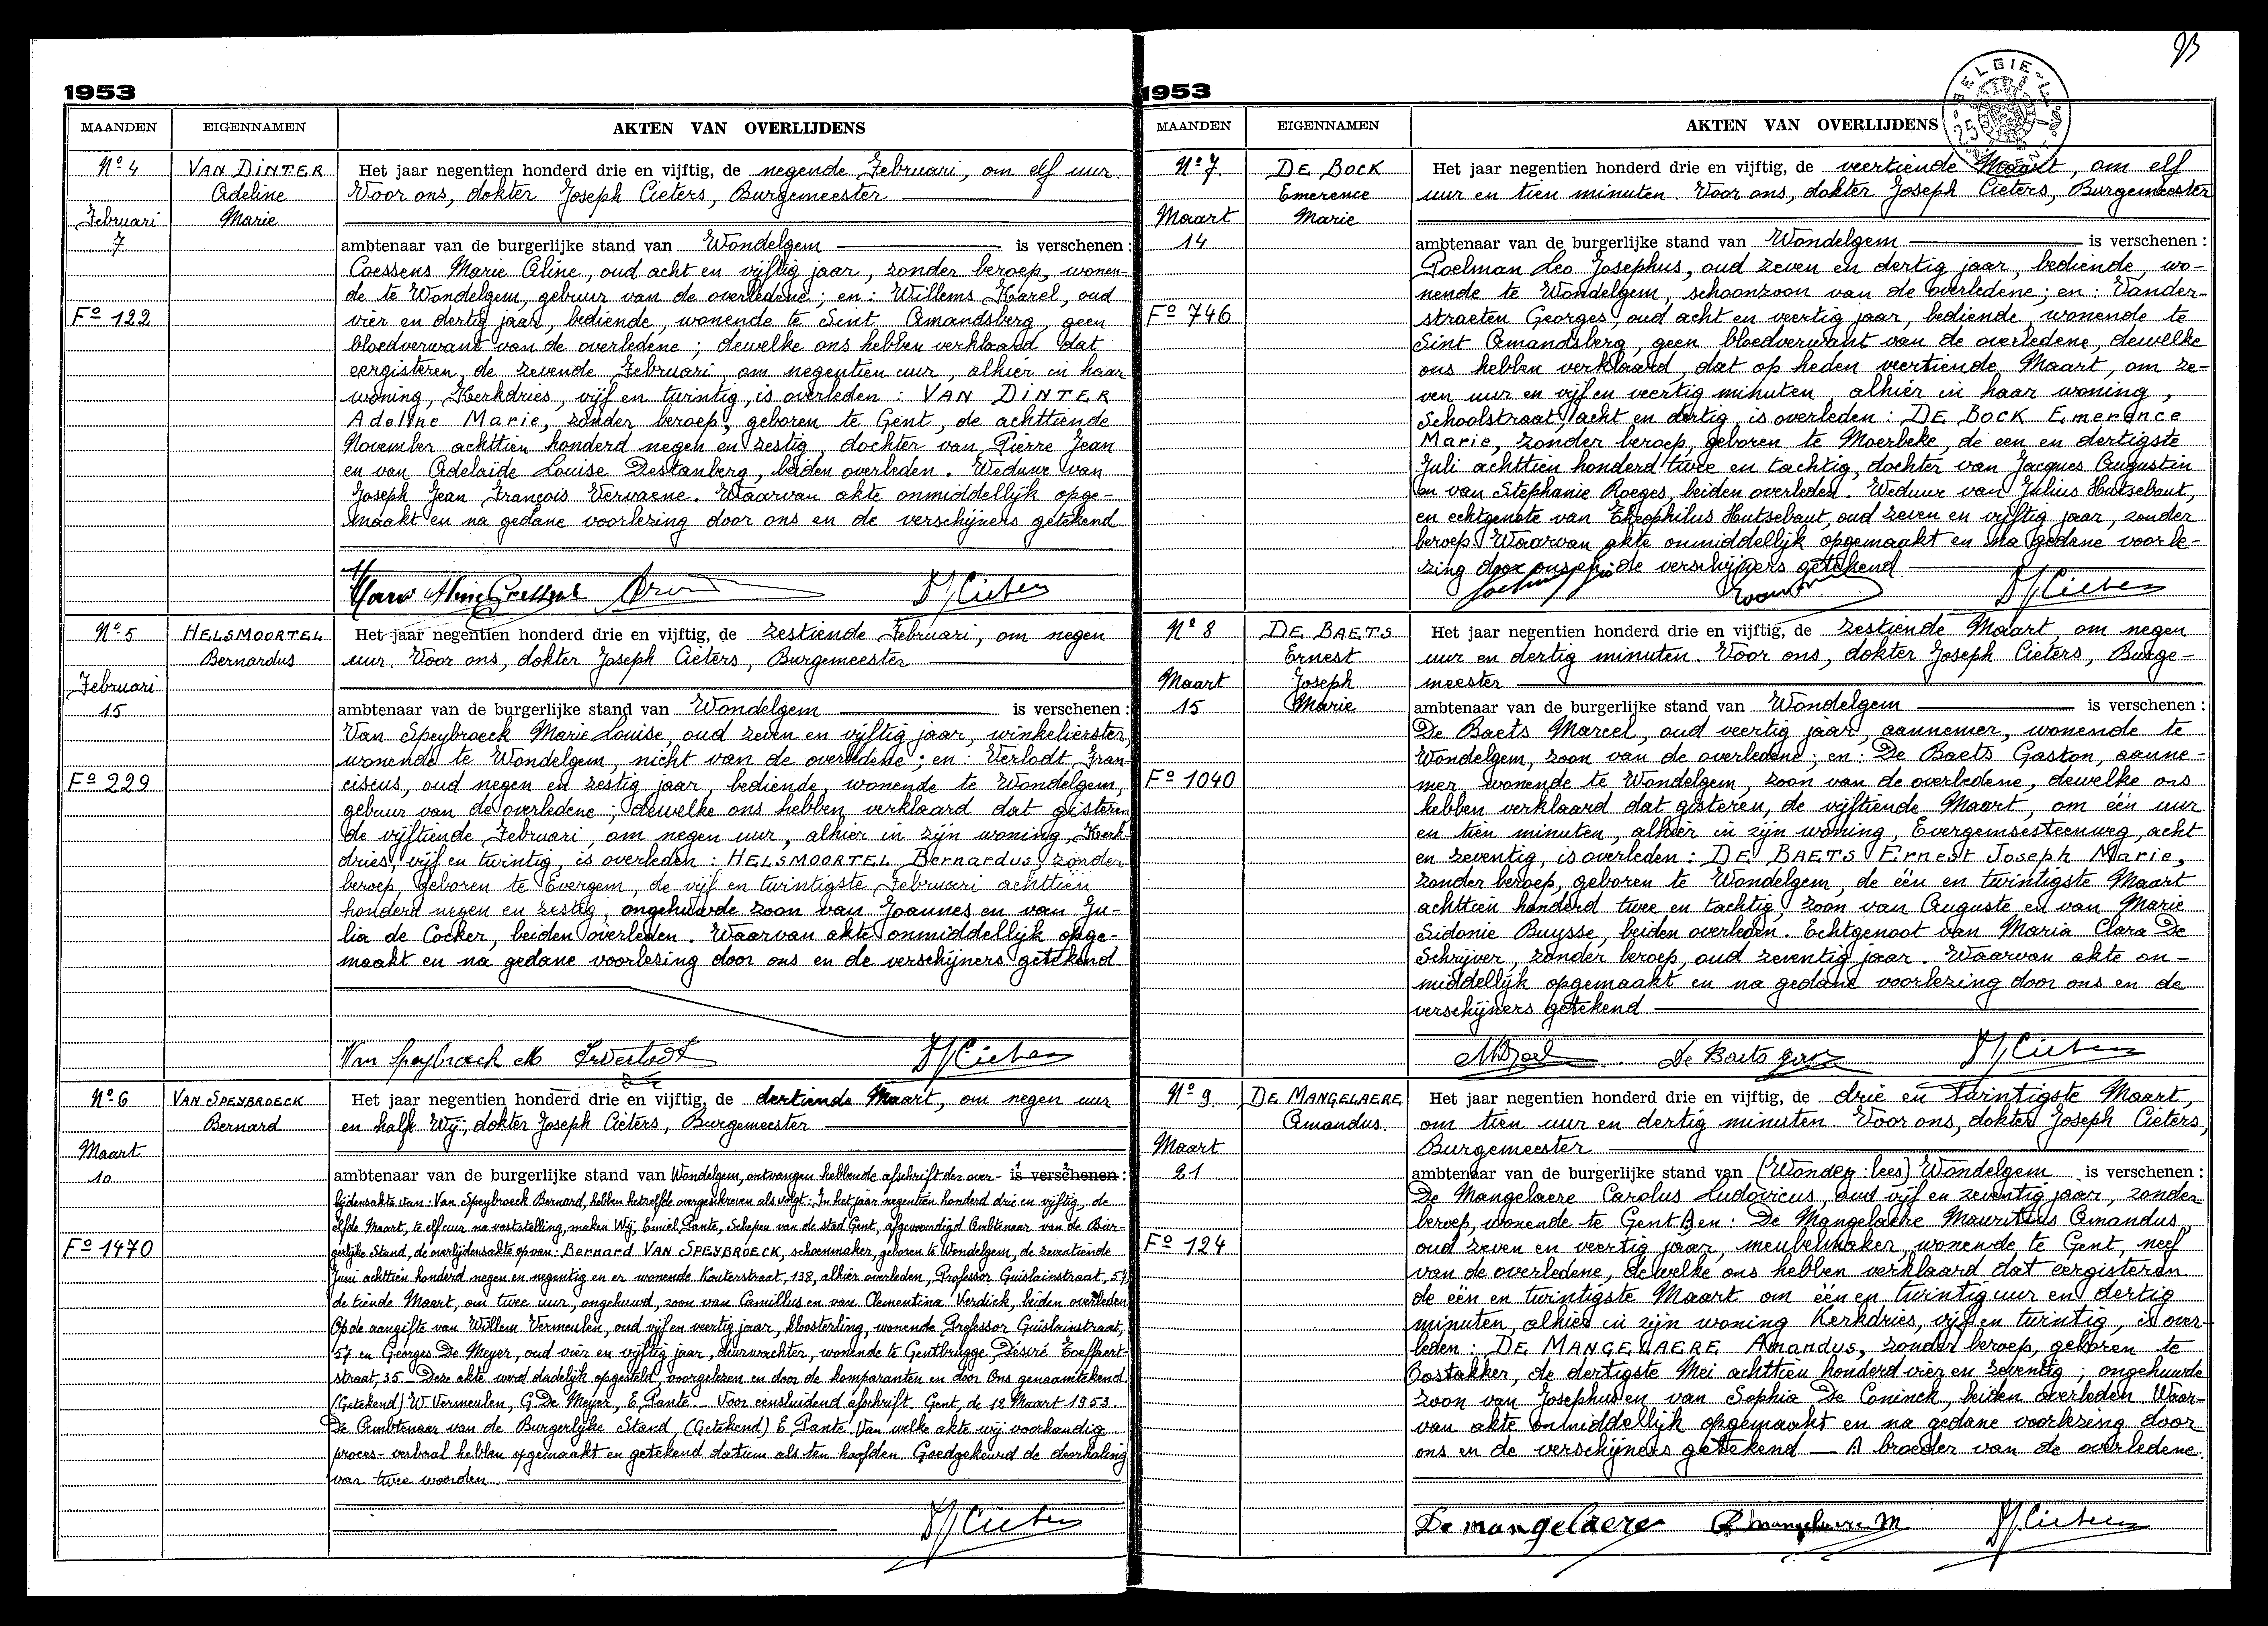 93
1953
MAANDEN EIGENNAMEN AKTEN VAN OVERLIJDENS
Nº 4
Februari
7
Fº 122
VAN DINTER
Adeline
Marie
Het jaar negentien honderd drie en vijftig, de negende Februari, om elf uur.
Voor ons, dokter Joseph Cieters, Burgemeester
ambtenaar van de burgerlijke stand van Wondelgem is verschenen :
Coessens Marie Aline, oud acht en vijftig jaar, zonder beroep, wonen-
de te Wondelgem, gebuur van de overledene ; en : Willems Karel, oud
vier en dertig jaar, bediende, wonende te Sint Amandsberg, geen
bloedverwant van de overledene ; dewelke ons hebben verklaard dat
eergisteren, de zevende Februari, om negentien uur, alhier in haar
woning, Kerkdries, vijf en twintig, is overleden : VAN DINTER
Adeline Marie, zonder beroep, geboren te Gent, de achttiende
November achttien honderd negen en zestig, dochter van Pierre Jean
en van Adelaïde Louise Destanberg, beiden overleden. Weduwe van
Joseph Jean François Vervaene. Waarvan akte onmiddellijk opge-
maakt en na gedane voorlezing door ons en de verschijners getekend
Marie Aline Coessens
J Cieters
Nº 5
Februari
15
Fº 229
HELSMOORTEL
Bernardus
Het jaar negentien honderd drie en vijftig, de zestiende Februari, om negen
uur. Voor ons, dokter Joseph Cieters, Burgemeester
ambtenaar van de burgerlijke stand van Wondelgem is verschenen :
Van Speybroeck Marie Louise, oud zeven en vijftig jaar, winkelierster,
wonende te Wondelgem, nicht van de overledene ; en : Verlodt Fran-
ciscus, oud negen en zestig jaar, bediende, wonende te Wondelgem,
gebuur van de overledene ; dewelke ons hebben verklaard dat gisteren
de vijftiende Februari, om negen uur, alhier in zijn woning, Kerk-
dries, vijf en twintig, is overleden : HELSMOORTEL Bernardus, zonder
beroep, geboren te Evergem, de vijf en twintigste Februari achttien
honderd negen en zestig, ongehuwde zoon van Joannes en van Ju-
lia de Cocker, beiden overleden. Waarvan akte onmiddellijk opge-
maakt en na gedane voorlesing door ons en de verschijners getekend
Van Speybroeck M Fr Verlodt J Cieters
Nº 6
Maart
10
Fº 1470
VAN SPEYBROECK
Bernard
Het jaar negentien honderd drie en vijftig, de dertiende Maart, om negen uur
en half. Wij, dokter Joseph Cieters, Burgemeester
ambtenaar van de burgerlijke stand van Wondelgem, ontvangen hebbende afschrift der over- is verschenen :
lijdensakte van : Van Speybroeck Bernard, hebben hetzelfde overgeschreven als volgt : In het jaar negentien honderd drie en vijftig, de
elfde Maart, te elf uur na vaststelling, maken Wij, Emiel Pante, Schepen van de stad Gent, afgevaardigd Ambtenaar van de Bur-
gerlijke Stand, de overlijdensakte op van : Bernard VAN SPEYBROECK, schoenmaker, geboren te Wondelgem, de zeventiende
Juni achttien honderd negen en negentig en er wonende Kouterstraat, 138, alhier overleden, Professor Guislainstraat, 57
de tiende Maart, om twee uur, ongehuwd, zoon van Camillus en van Clementina Verdick, beiden overleden
Op de aangifte van Willem Vermeulen, oud vijf en veertig jaar, kloosterling, wonende Professor Guislainstraat,
57 en Georges De Meyer, oud vier en vijftig jaar, deurwachter, wonende te Gentbrugge, Désiré Toeffaert-
straat, 35 – Deze akte werd dadelijk opgesteld, voorgelezen en door de komparanten en door Ons genaamtekend.
(Getekend) W. Vermeulen, G. De Meyer, E. Pante. – Voor eensluidend afschrift. Gent, de 12 Maart 1953.
De Ambtenaar van de Burgerlijke Stand, (Getekend) E. Pante. Van welke akte wij voorhandig
proces-verbaal hebben opgemaakt en getekend datum als ten hoofden. Goedgekeurd de doorhaling
van twee woorden.
J Cieters
1953
MAANDEN EIGENNAMEN AKTEN VAN OVERLIJDENS
Nº 7
Maart
14
Fº 746
DE BOCK
Emerence
Marie
Het jaar negentien honderd drie en vijftig, de veertiende Maart, om elf
uur en tien minuten. Voor ons, dokter Joseph Cieters, Burgemeester
ambtenaar van de burgerlijke stand van Wondelgem is verschenen :
Poelman Leo Josephus, oud zeven en dertig jaar, bediende, wo-
nende te Wondelgem, schoonzoon van de overledene ; en : Vander-
straeten Georges, oud acht en veertig jaar, bediende, wonende te
Sint Amandsberg, geen bloedverwant van de overledene, dewelke
ons hebben verklaard, dat op heden veertiende Maart, om ze-
ven uur en vijf en veertig minuten, alhier in haar woning,
Schoolstraat, acht en dertig, is overleden : DE BOCK Emerence
Marie, zonder beroep, geboren te Moerbeke, de een en dertigste
Juli achttien honderd twee en tachtig, dochter van Jacques Augustin
en van Stephanie Roeges, beiden overleden. Weduwe van Julius Hutsebaut,
en echtgenote van Theophilus Hutsebaut, oud zeven en vijftig jaar, zonder
beroep. Waarvan akte onmiddellijk opgemaakt en na gedane voorle-
zing door ons en de verschijners getekend
J Cieters
Nº 8
Maart
15
Fº 1040
DE BAETS
Ernest
Joseph
Marie
Het jaar negentien honderd drie en vijftig, de zestiende Maart, om negen
uur en dertig minuten. Voor ons, dokter Joseph Cieters, Burge-
meester
ambtenaar van de burgerlijke stand van Wondelgem is verschenen :
De Baets Marcel, oud veertig jaar, aannemer, wonende te
Wondelgem, zoon van de overledene ; en : De Baets Gaston, aanne-
mer, wonende te Wondelgem, zoon van de overledene, dewelke ons
hebben verklaard dat gisteren, de vijftiende Maart, om één uur
en tien minuten, alhier in zijn woning, Evergemsesteenweg, acht
en zeventig, is overleden : DE BAETS Ernest Joseph Marie,
zonder beroep, geboren te Wondelgem, de één en twintigste Maart
achttien honderd twee en tachtig, zoon van Auguste en van Marie
Sidonie Buysse, beiden overleden. Echtgenoot van Maria Clara De
Schrijver, zonder beroep, oud zeventig jaar. Waarvan akte on-
middellijk opgemaakt en na gedane voorlezing door ons en de
verschijners getekend
De Baets J Cieters
Nº 9
Maart
21
Fº 124
DE MANGELAERE
Amandus.
Het jaar negentien honderd drie en vijftig, de drie en twintigste Maart,
om tien uur en dertig minuten. Voor ons, dokter Joseph Cieters,
Burgemeester
ambtenaar van de burgerlijke stand van (Wondeg : lees) Wondelgem is verschenen :
De Mangelaere Carolus Ludovicus, oud vijf en zeventig jaar, zonder
beroep, wonende te Gent A en : De Mangelaere Mauritius Amandus,
oud zeven en veertig jaar, meubelmaker, wonende te Gent, neef
van de overledene, dewelke ons hebben verklaard dat eergisteren
de één en twintigste Maart om één en twintig uur en dertig
minuten, alhier in zijn woning Kerkdries, vijf en twintig, is over-
leden : DE MANGELAERE Amandus, zonder beroep, geboren te
Oostakker, de dertigste Mei achttien honderd vier en zeventig ; ongehuwde
zoon van Josephus en van Sophia De Coninck, beiden overleden. Waar-
van akte onmiddellijk opgemaakt en na gedane voorlezing door
ons en de verschijners getekend — A broeder van de overledene.
De mangelaere De mangelaere M J Cieters